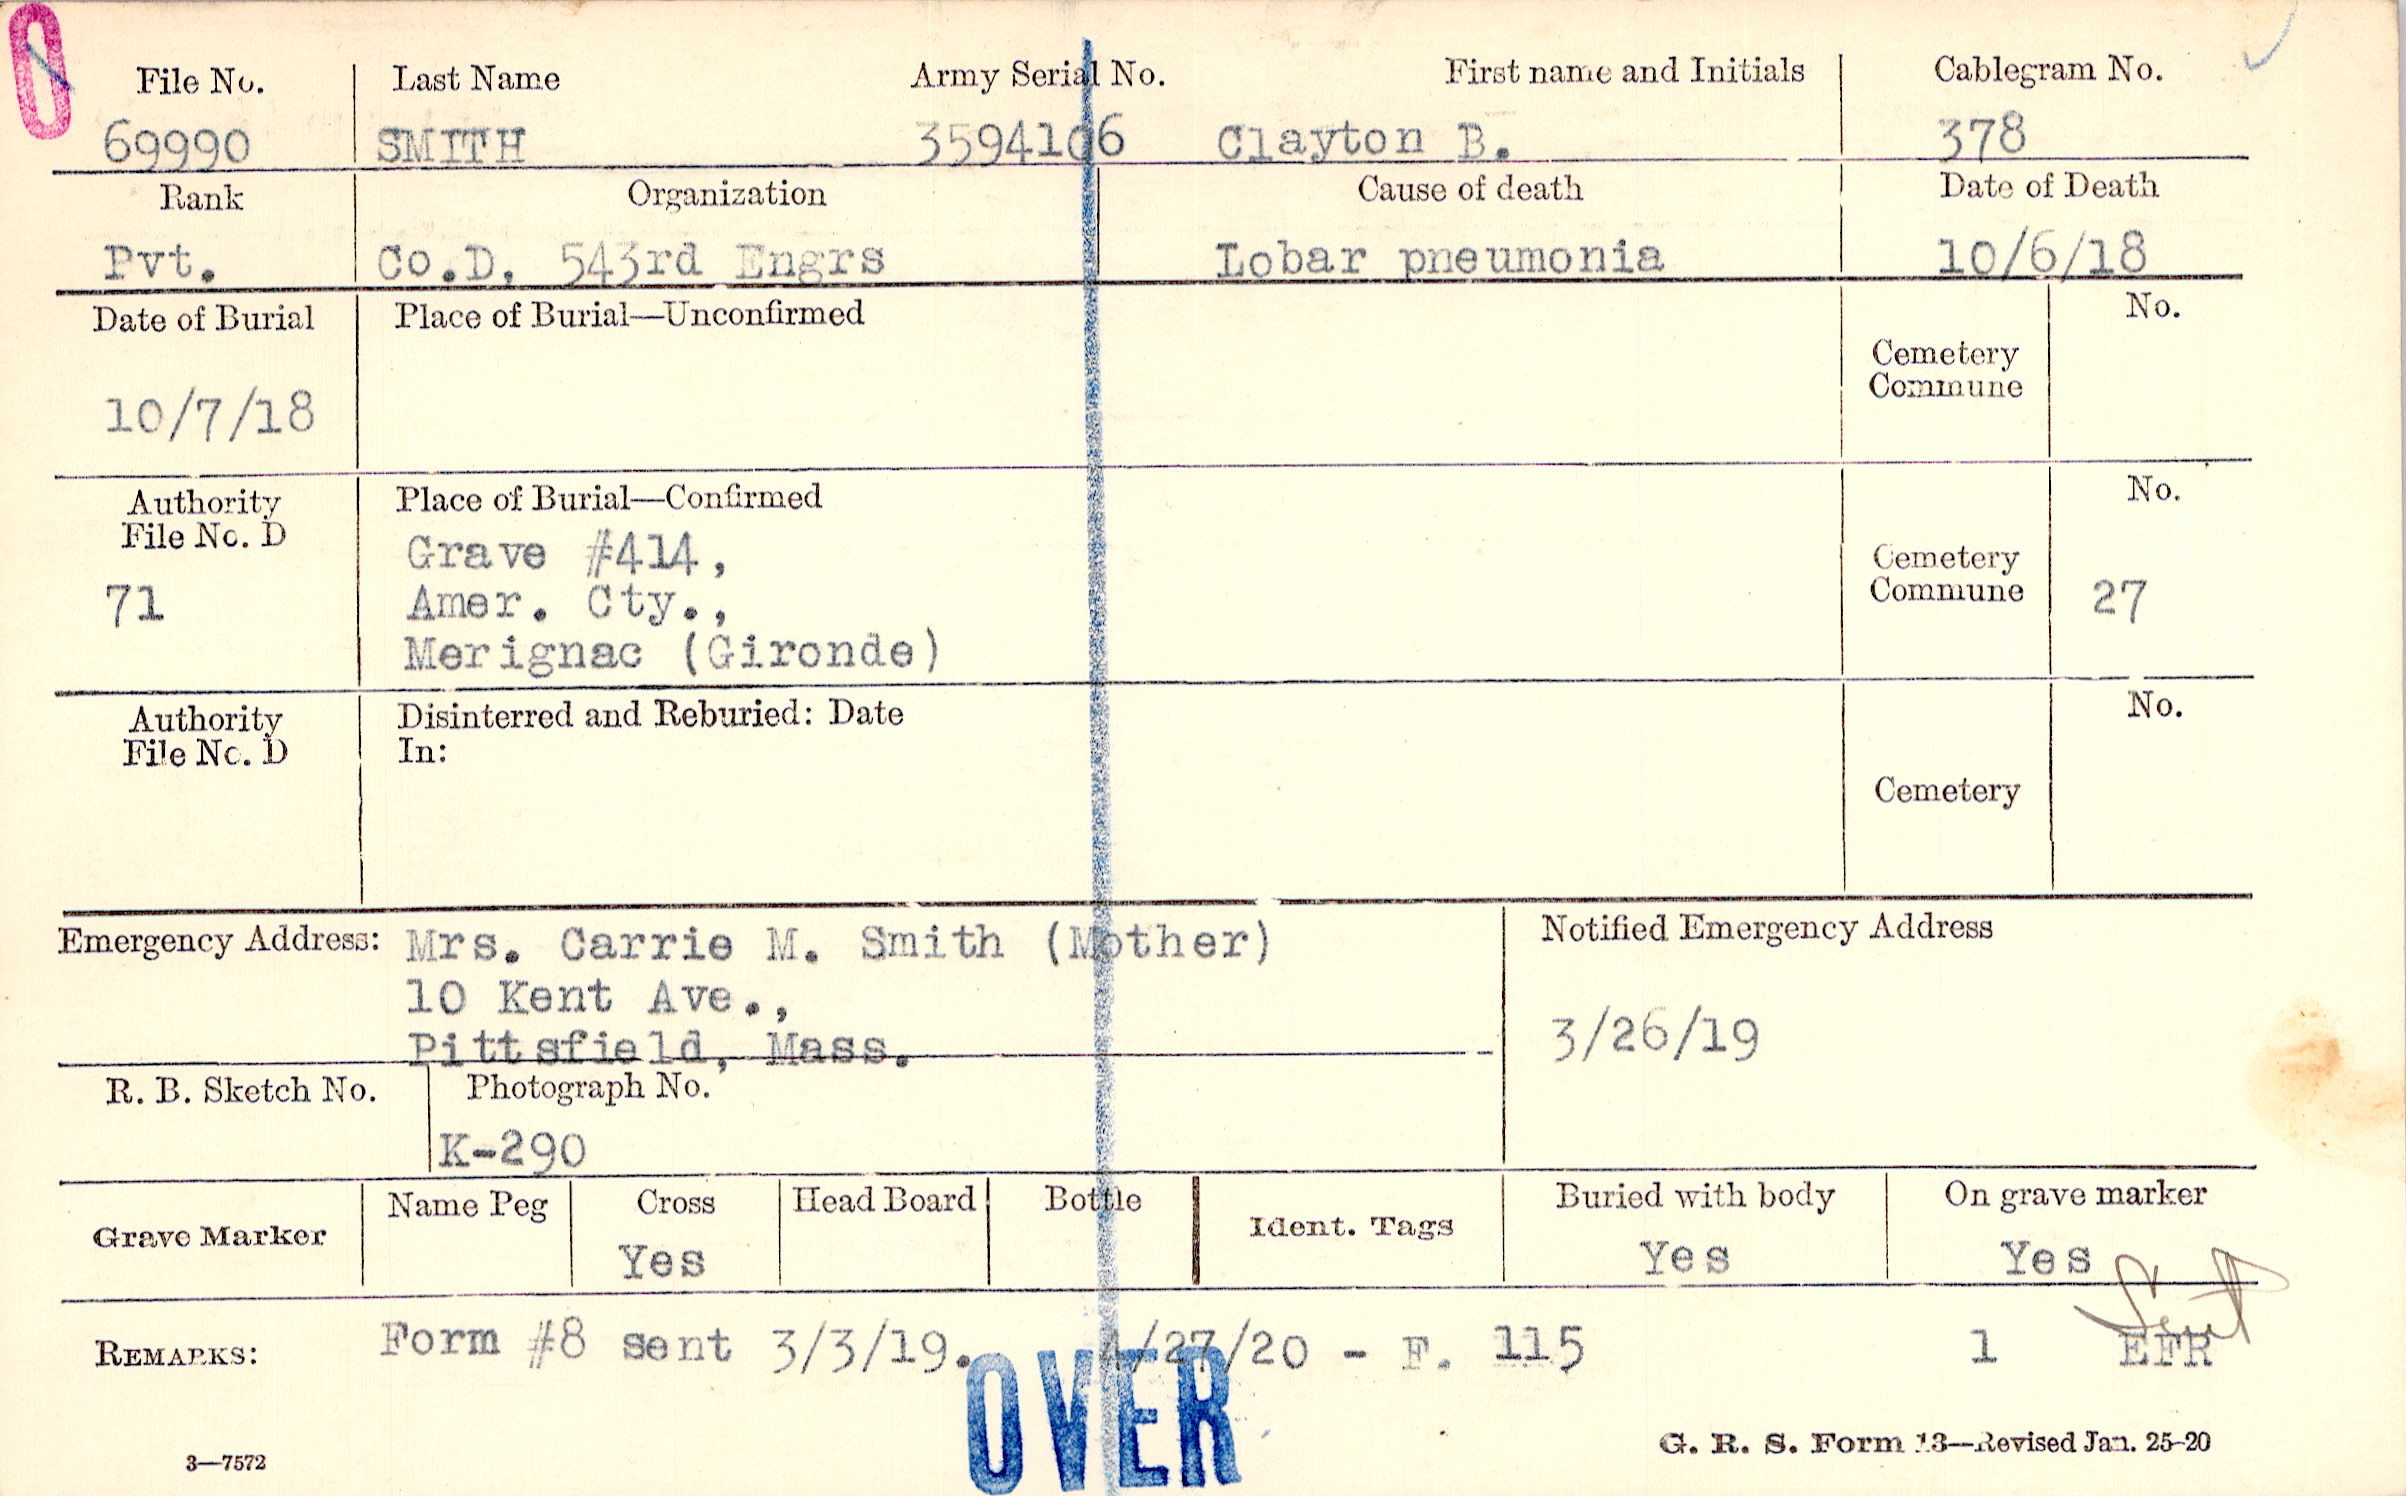 0
File No. Last Name Army Serial No. First name and Initials Cablegram No.
69990 SMITH 3594106 Clayton B. 378
Rank Organization Cause of death Date of Death
Pvt. Co.D, 543rd Engrs Lobar pneumonia 10/6/18
Date of Burial Place of Burial—Unconfirmed No.
Cemetery
Commune
10/7/18
Authority Place of Burial—Confirmed No.
File No. D
Grave #414,
Cemetery
Commune
71 Amer. Cty., 27
Merignac (Gironde)
Authority Disinterred and Reburied: Date No.
File No. D In:
Cemetery
Emergency Address: Mrs. Carrie M. Smith (Mother) Notified Emergency Address
10 Kent Ave.,
Pittsfield, Mass. 3/26/19
R. B. Sketch No. Photograph No.
K-290
Grave Marker Name Peg Cross Head Board Bottle Ident. Tags Buried with body On grave marker
Yes Yes Yes
Sent
REMARKS: Form #8 sent 3/3/19. 4/27/20 - F. 115 1 EFR
OVER
3—7572 G. R. S. Form 13—Revised Jan. 25-20